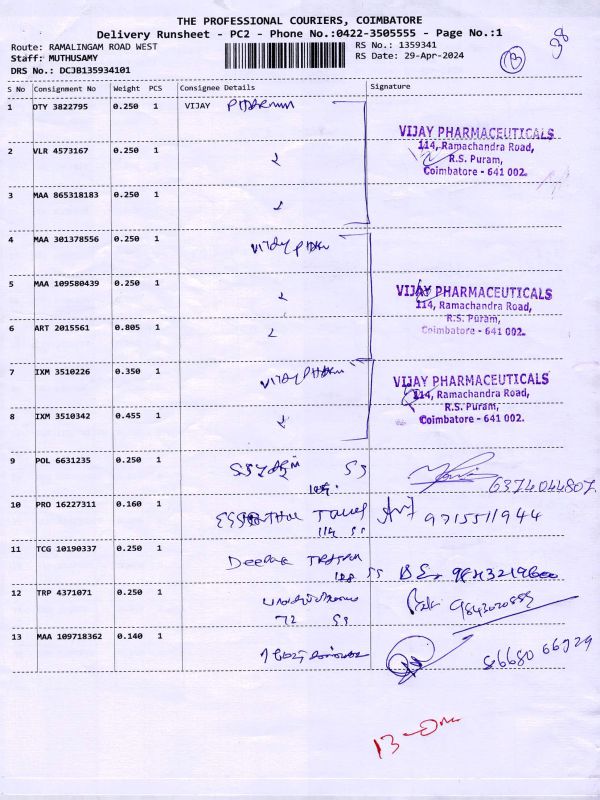 THE PROFESSIONAL COURIERS, COIMBATORE
Delivery Runsheet - PC2 - Phone No.:0422-3505555 - Page No.:1
Route: RAMALINGAM ROAD WEST RS No.: 1359341
Staff: MUTHUSAMY RS Date: 29-Apr-2024
DRS No.: DCJB135934101
13
38
S No Consignment No Weight PCS Consignee Details Signature
1 DTY 3822795 0.250 1 VIJAY
VIJAY PHARMACEUTICALS
114, Ramachandra Road,
R.S. Puram,
Coimbatore - 641 002.
2 VLR 4573167 0.250 1
3 MAA 865318183 0.250 1
4 MAA 301378556 0.250 1
5 MAA 109580439 0.250 1
VIJAY PHARMACEUTICALS
114, Ramachandra Road,
R.S. Puram,
Coimbatore - 641 002.
6 ART 2015561 0.805 1
7 IXM 3510226 0.350 1
VIJAY PHARMACEUTICALS
114, Ramachandra Road,
R.S. Puram,
Coimbatore - 641 002.
8 IXM 3510342 0.455 1
9 POL 6631235 0.250 1
6374044807
10 PRO 16227311 0.160 1 9715511944
11 TCG 10190337 0.250 1 Deepak
12 TRP 4371071 0.250 1
72
13 MAA 109718362 0.140 1
13 -